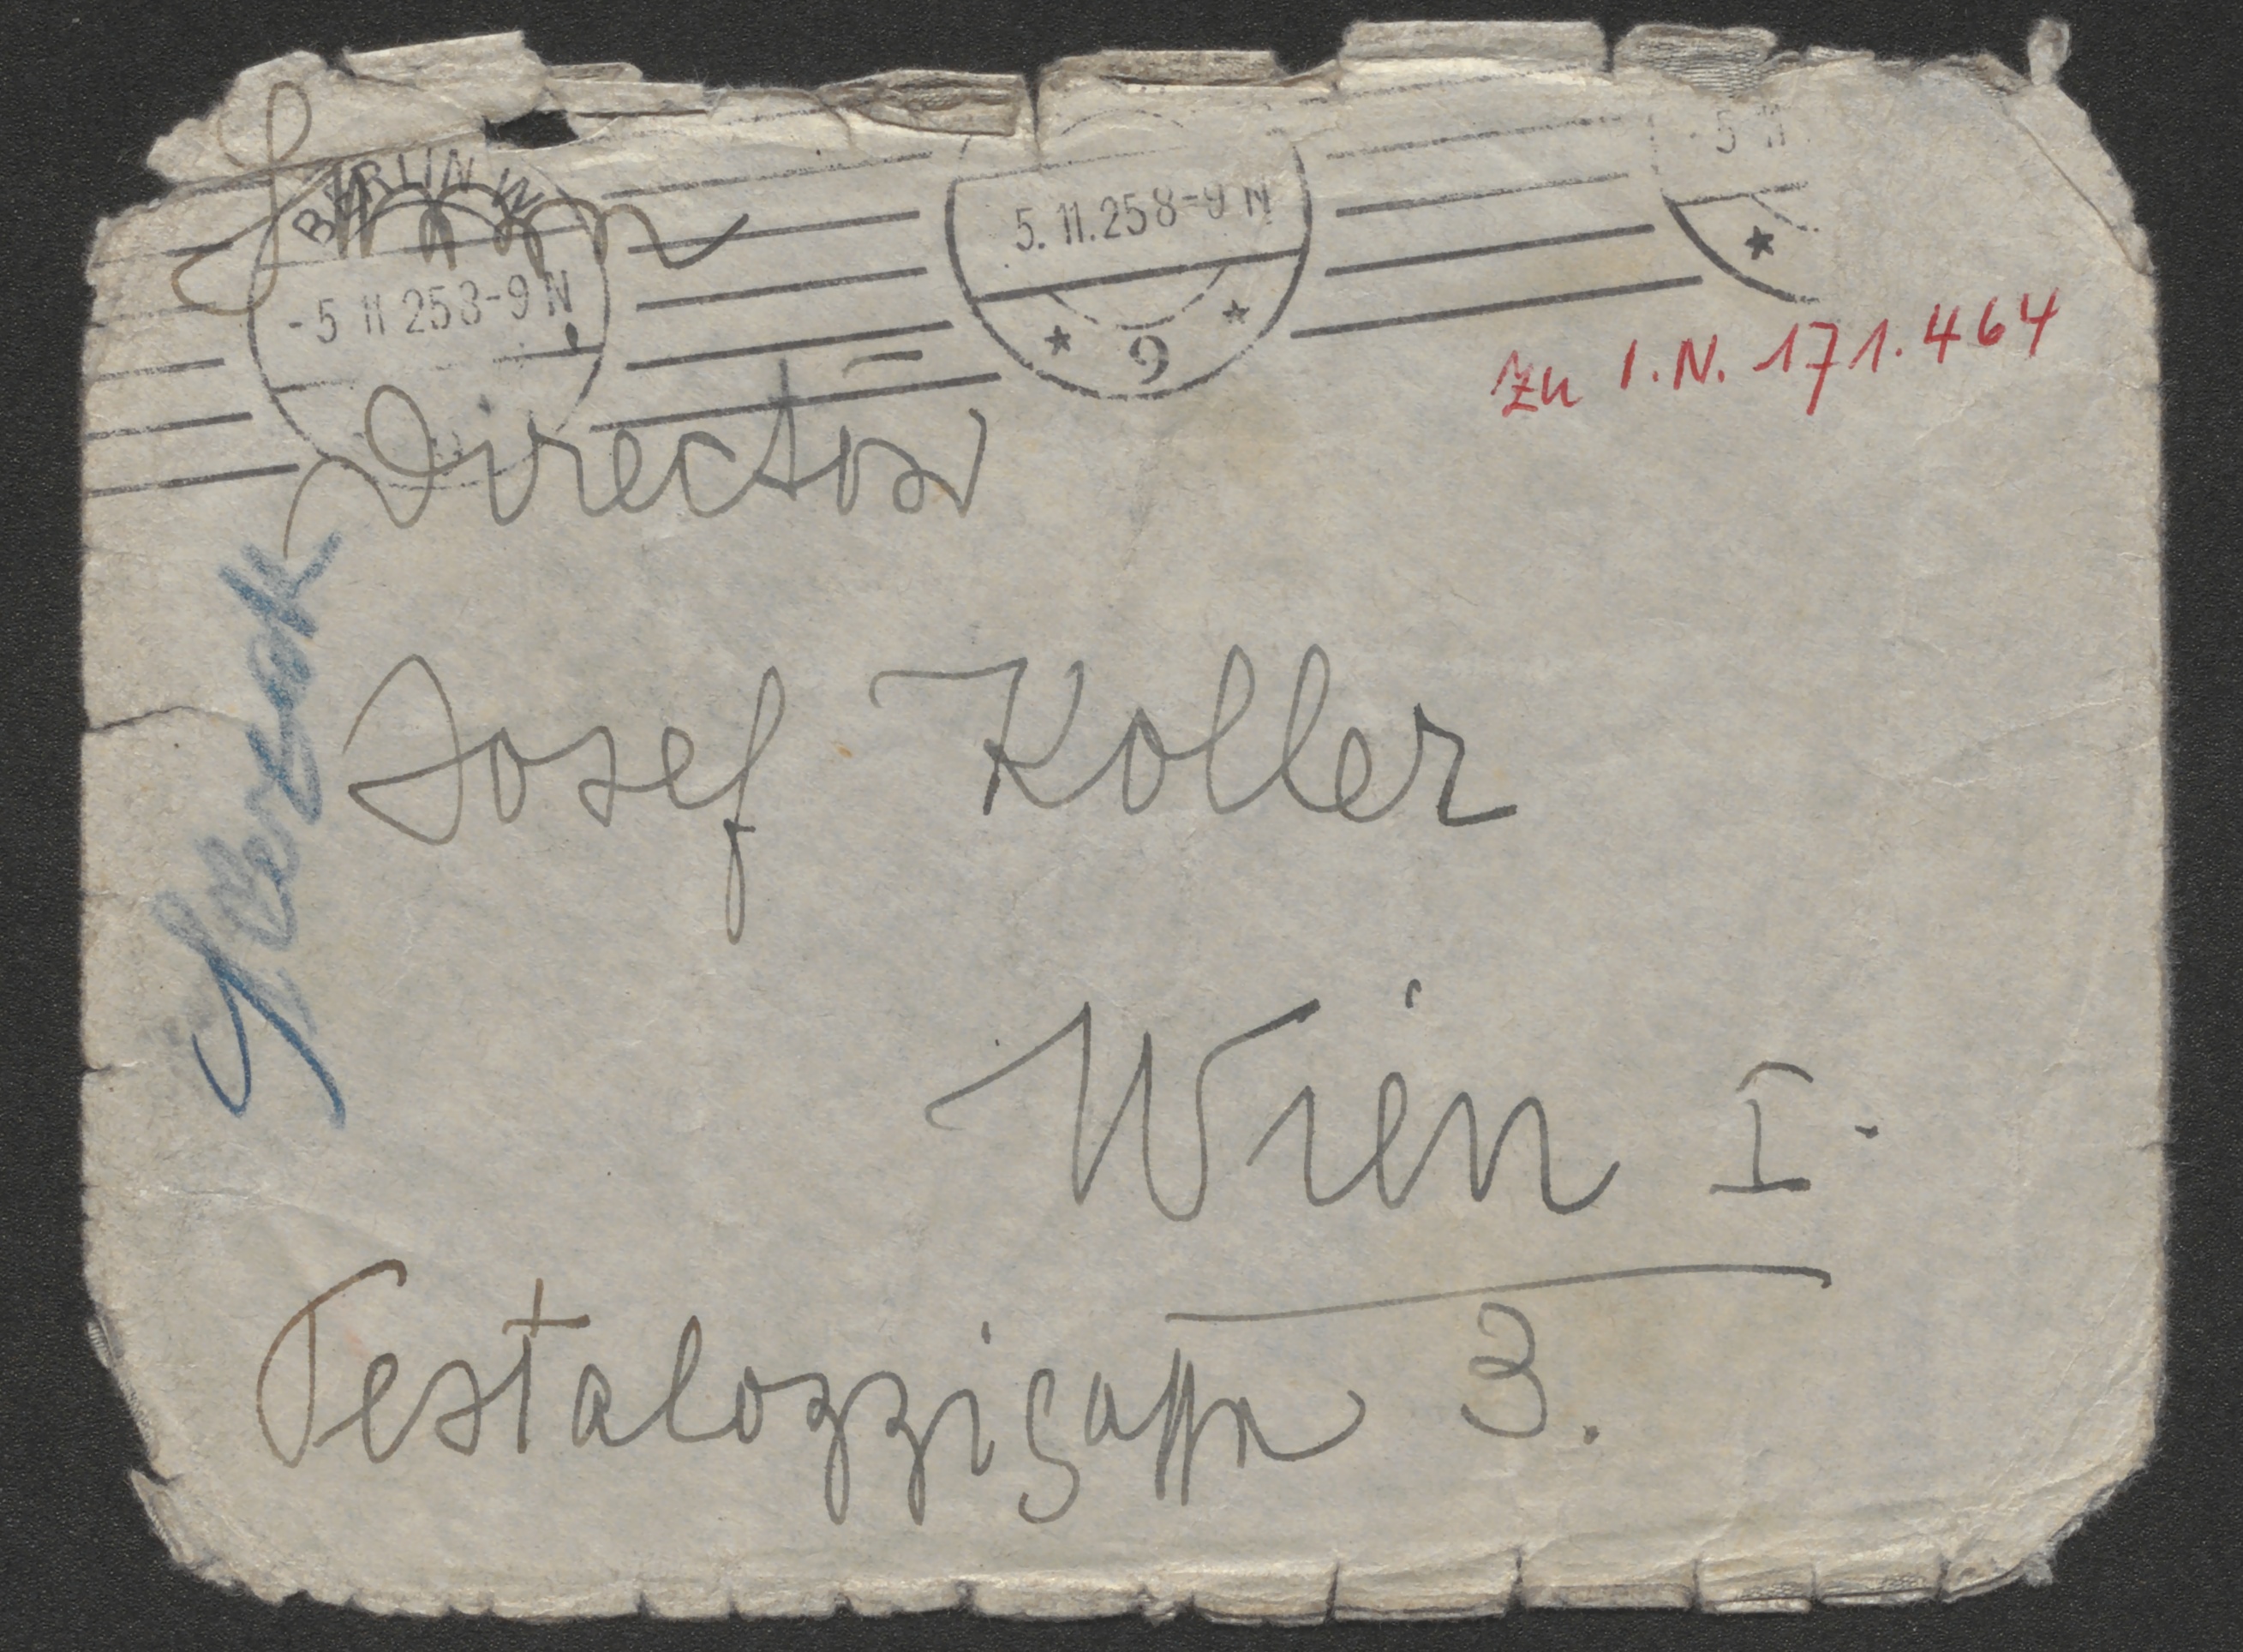 BERLIN W
-5 11 25 8-9 N
5.11.25 8-9 N
9
- 5 11
zu I.N. 171.464
Herrn
Director
Josef Koller
Wien I.
Pestalozzigasse 3.